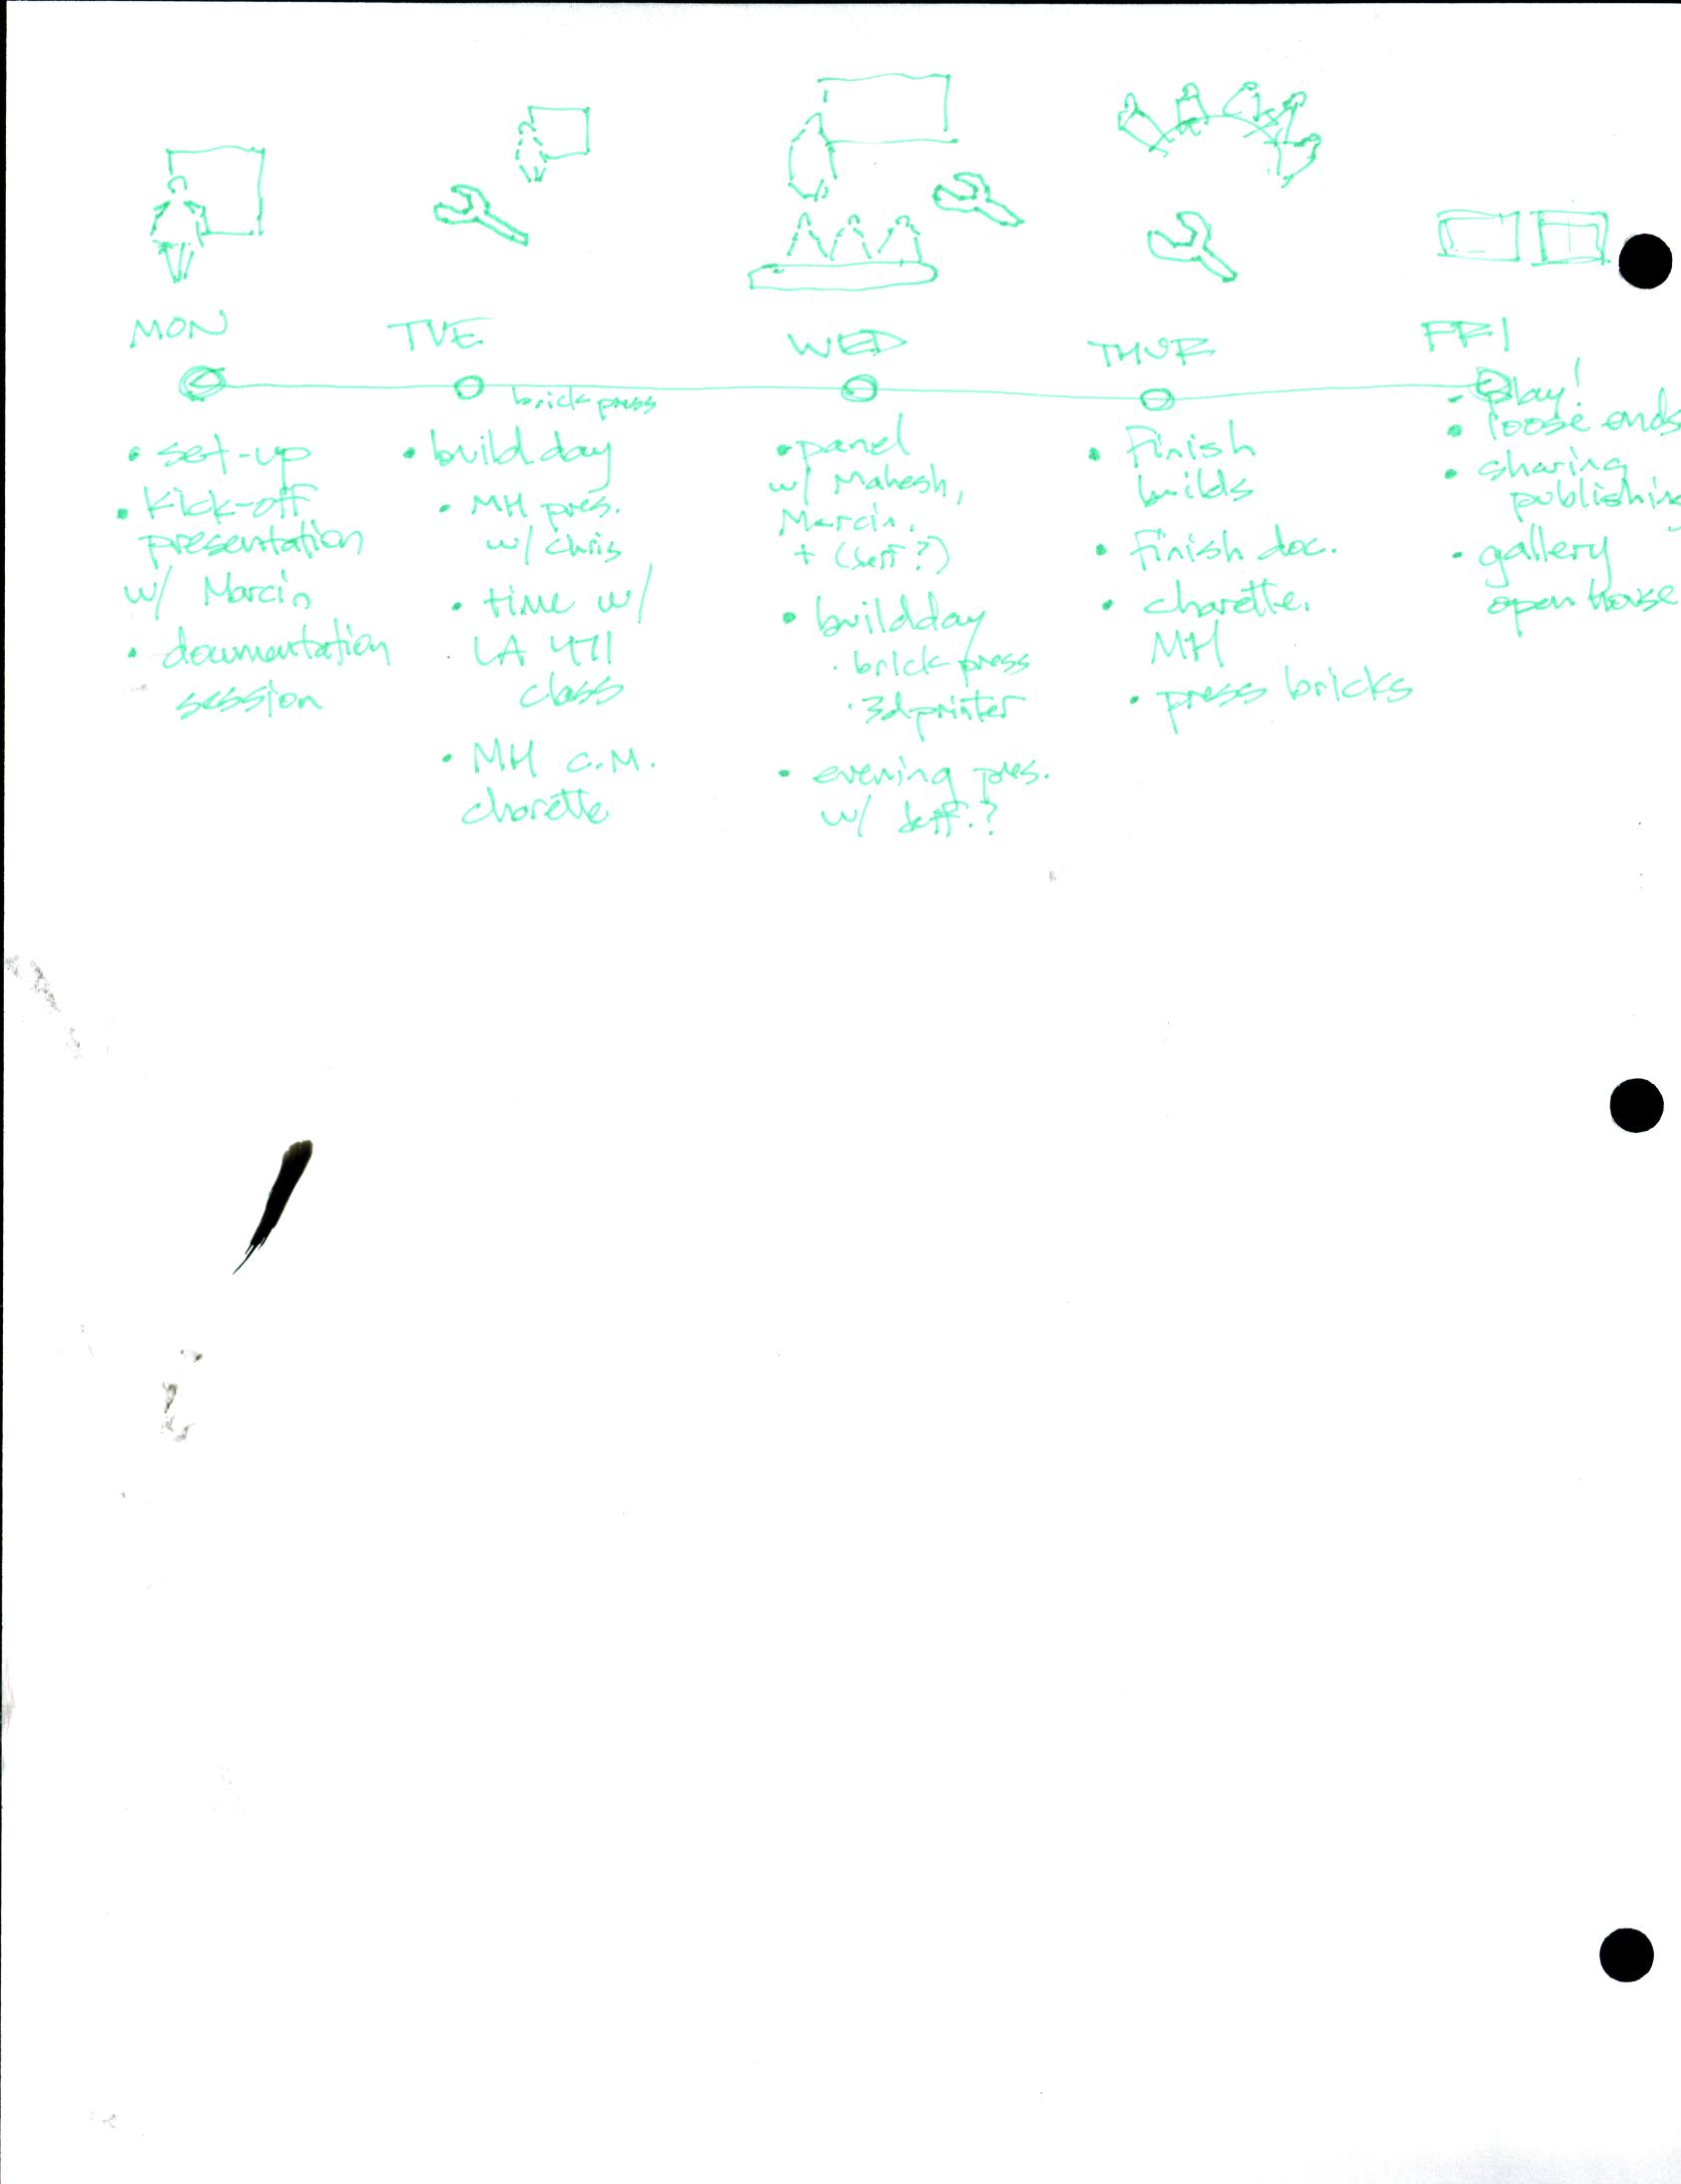 MON
• set-up
• Kick-off
presentation
w/ Marcin
• documentation
session
TUE
brick press
• build day
• MH pres.
w/ Chris
• time w/
LA 471
class
• MH C.M.
charette
WED
• panel
w/ Mahesh,
Marcin,
+ (Jeff?)
• build day
• brick press
• 3d printer
• evening pres.
w/ Jeff.?
THUR
• Finish
builds
• Finish doc.
• charette.
MH
• press bricks
FRI
• play!
• loose ends
• sharing
publishin
• gallery
open house